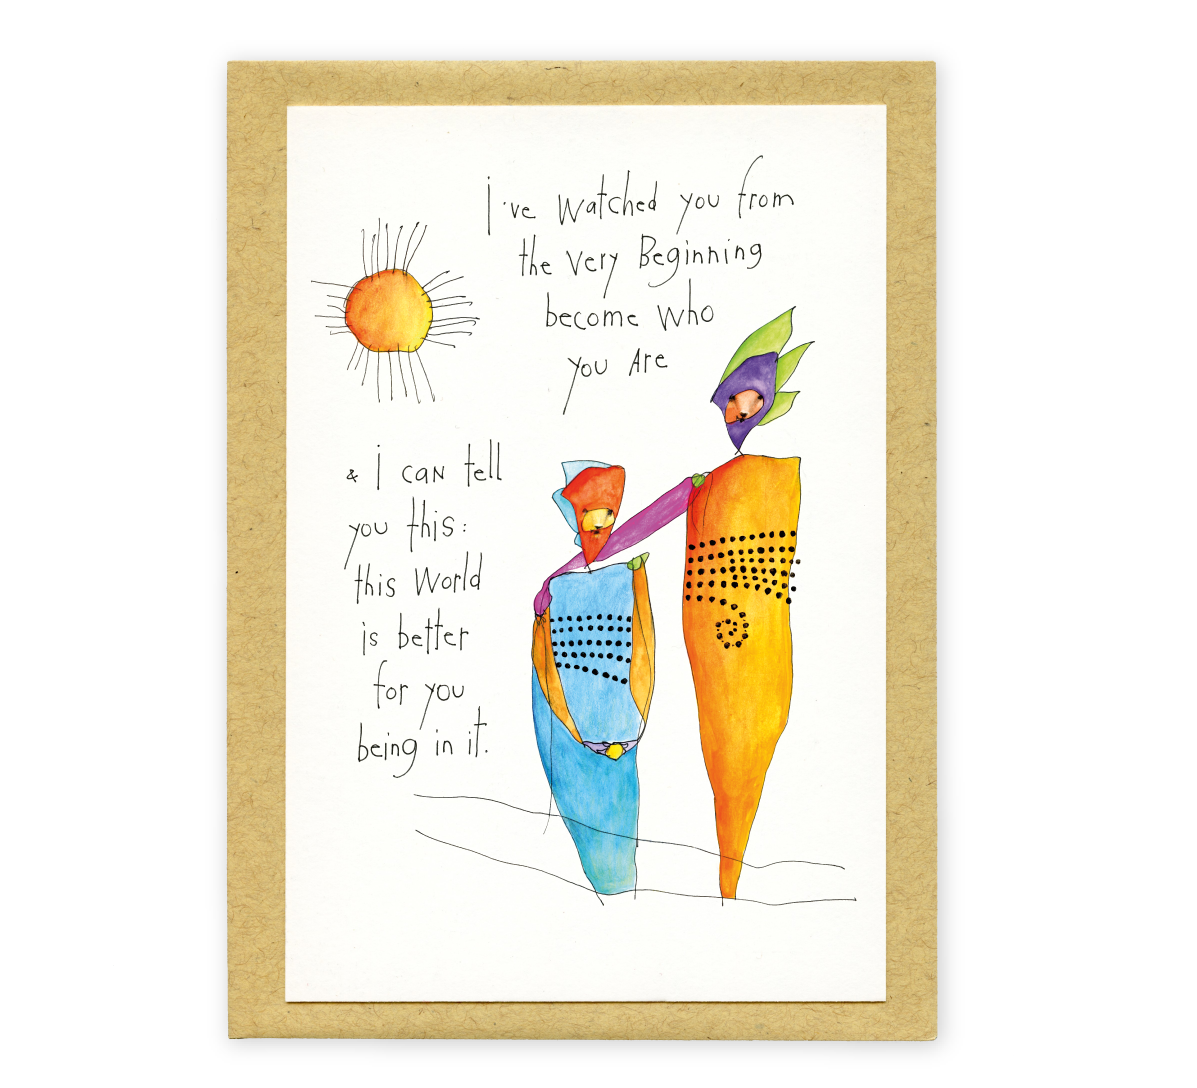 i've watched you from
the very Beginning
become who
you Are
& i can tell
you this:
this world
is better
for you
being in it.